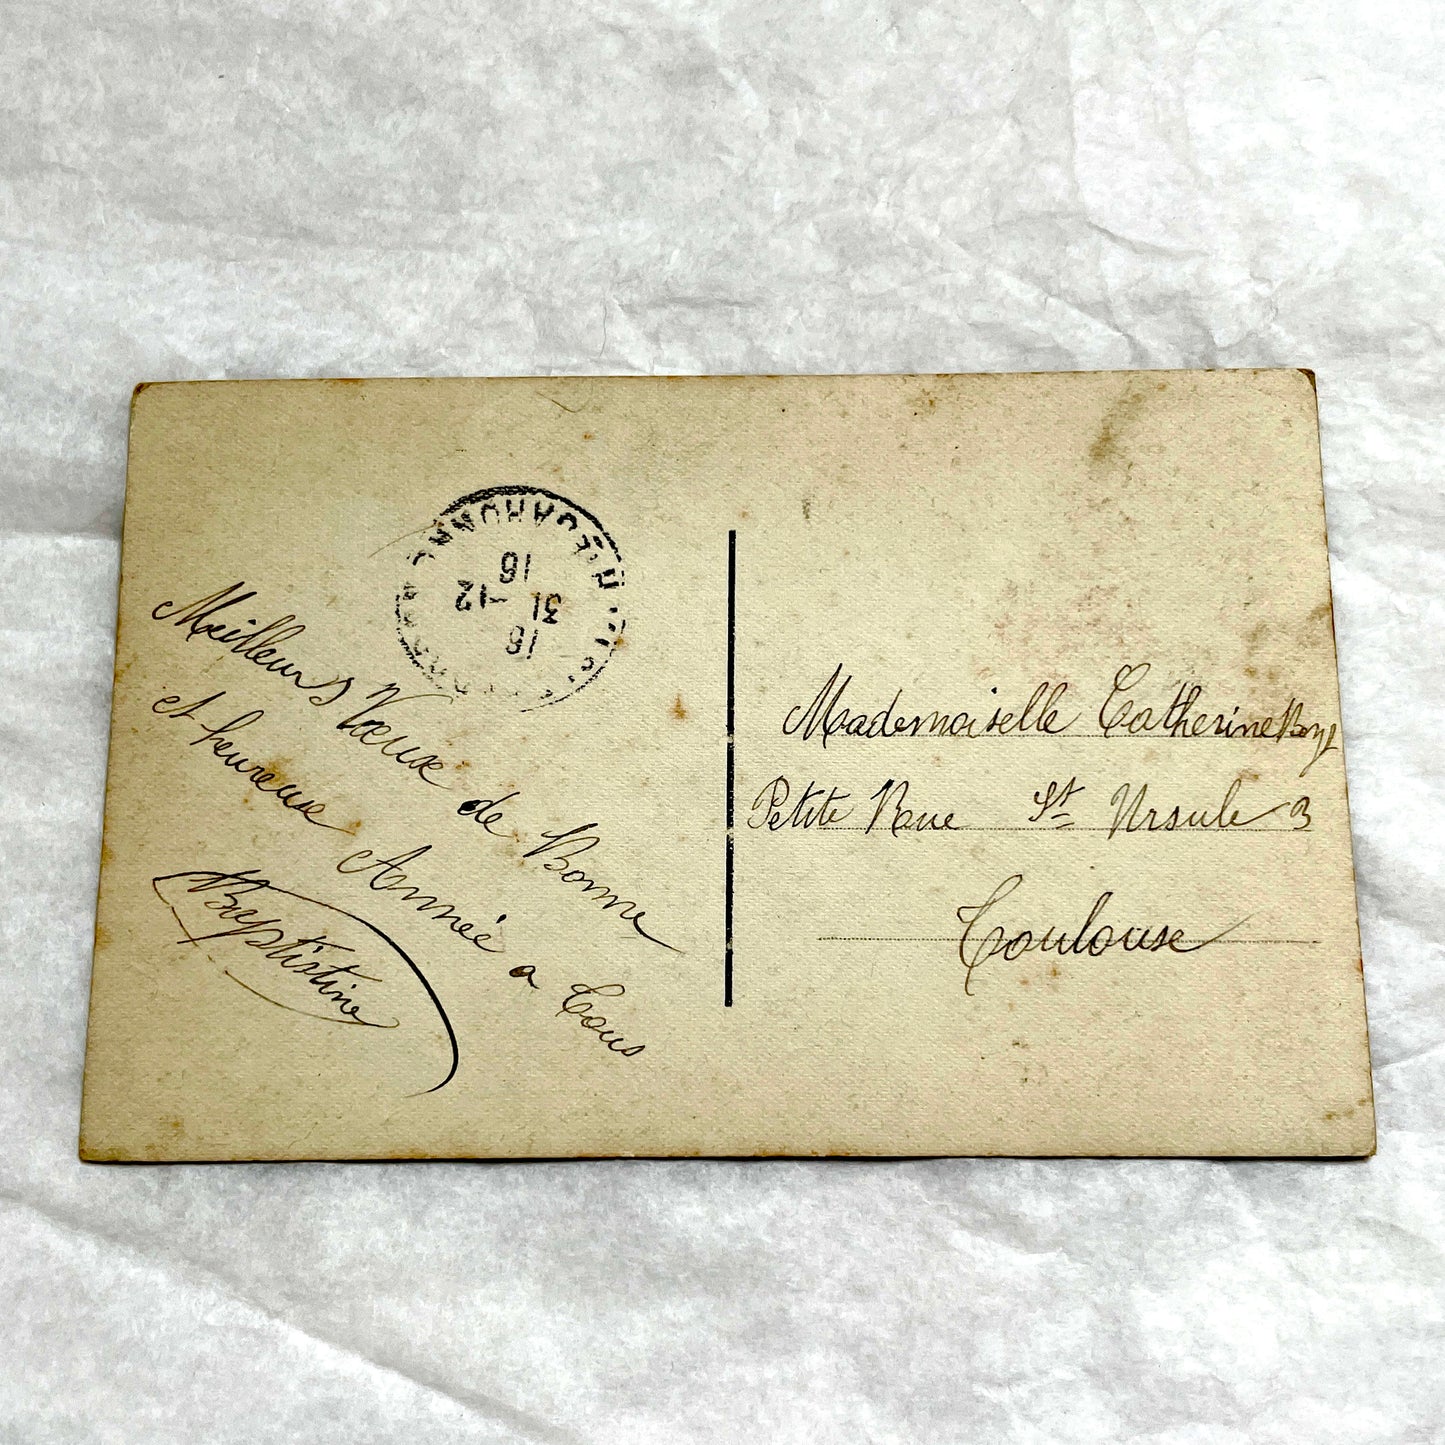 16
31 -12
16
Meilleurs Vœux de Bonne
et heureuse Année a Tous
Baptistine
Mademoiselle Catherine
Petite Rue St Ursule 3
Toulouse